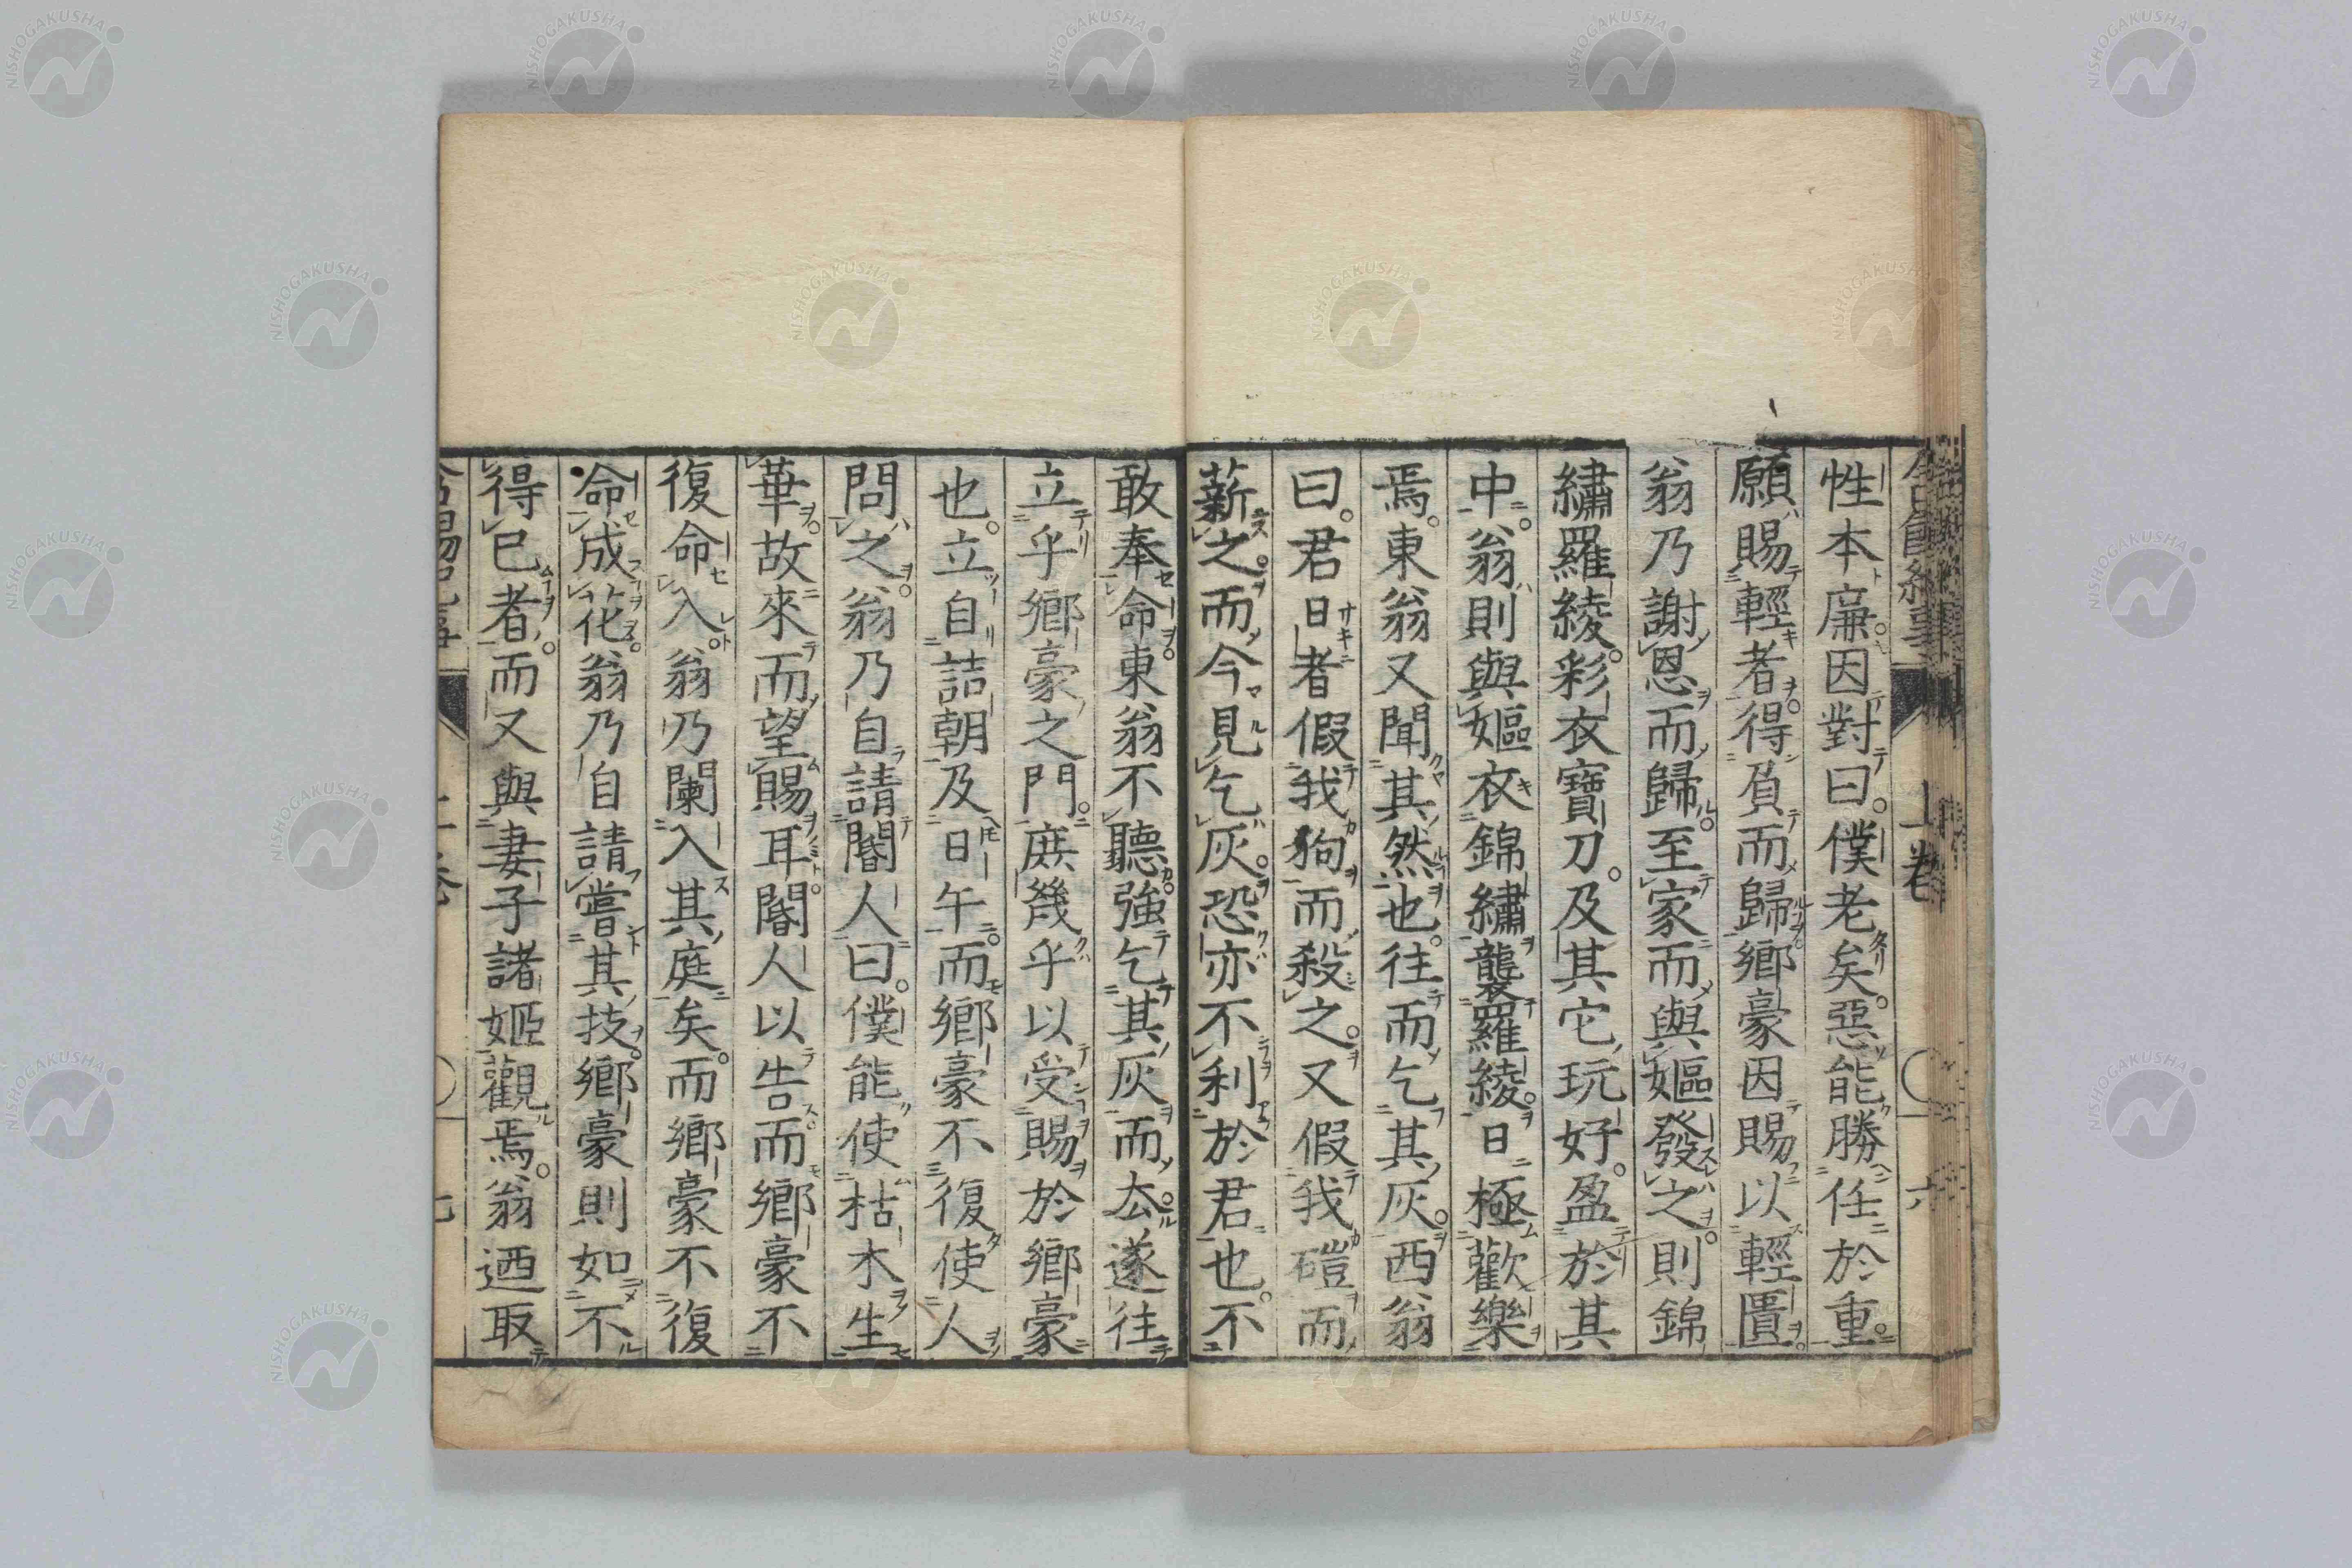 性本廉。因對曰。僕老矣。惡能勝任於重。
願賜輕者。得負而歸。鄉豪因賜以輕匱。
翁乃謝恩而歸。至家而與嫗發之。則錦
繡羅綾。彩衣寶刀。及其它玩好。盈於其
中。翁則與嫗衣錦繡襲羅綾。日極歡樂
焉。東翁又聞其然也。往而乞其灰。西翁
曰。君日者假我狗而殺之。又假我磑而
薪之。而今見乞灰。恐亦不利於君也。不
敢奉命。東翁不聽。強乞其灰而去。遂往
立乎鄉豪之門。庶幾乎以受賜於鄉豪
也。立自詰朝及日午。而鄉豪不復使人
問之。翁乃自請閽人曰。僕能使枯木生
華。故來而望賜耳。閽人以告。而鄉豪不
復命入。翁乃闌入其庭矣。而鄉豪不復
命成花。翁乃自請嘗其技。鄉豪則如不
得已者。而又與妻子諸姬觀焉。翁迺取
NISHOGAKUSHA